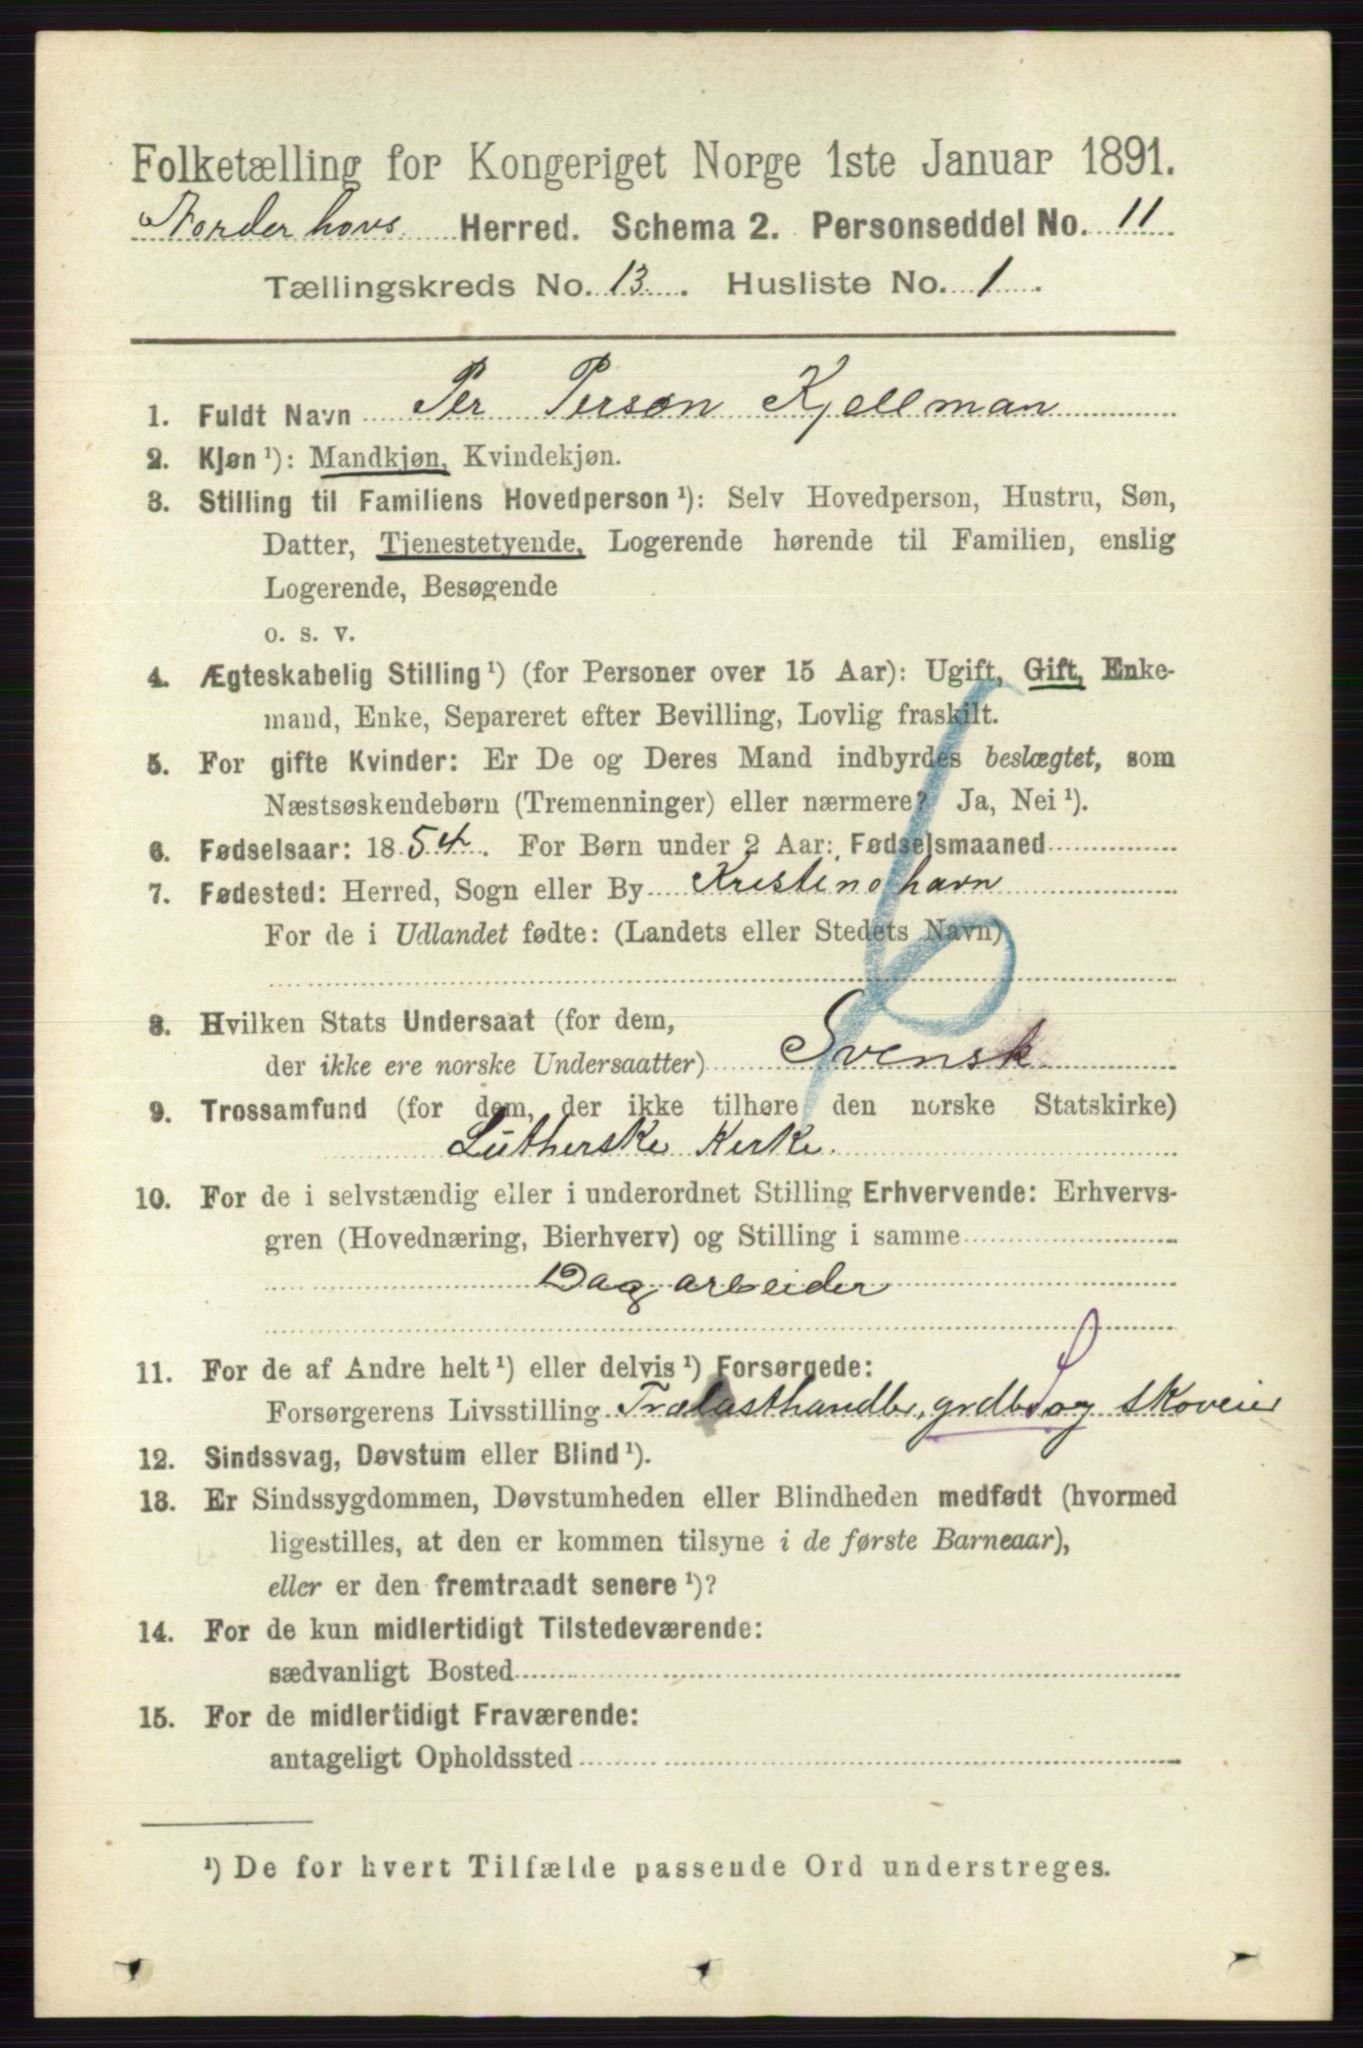 Folketælling for Kongeriget Norge 1ste Januar 1891.
Norderhovs Herred. Schema 2. Personseddel No. 11
Tællingskreds No. 13. Husliste No. 1.
1. Fuldt Navn Per Person Kjellman
2. Kjøn ¹): Mandkjøn, Kvindekjøn.
3. Stilling til Familiens Hovedperson ¹): Selv Hovedperson, Hustru, Søn,
Datter, Tjenestetyende, Logerende hørende til Familien, enslig
Logerende, Besøgende
o. s. v.
4. Ægteskabelig Stilling ¹) (for Personer over 15 Aar): Ugift, Gift, Enke-
mand, Enke, Separeret efter Bevilling, Lovlig fraskilt.
5. For gifte Kvinder: Er De og Deres Mand indbyrdes beslægtet, som
Næstsøskendebørn (Tremenninger) eller nærmere? Ja, Nei ¹).
6. Fødselsaar: 1854. For Børn under 2 Aar: Fødselsmaaned
7. Fødested: Herred, Sogn eller By Kristinehavn
For de i Udlandet fødte: (Landets eller Stedets Navn)
8. Hvilken Stats Undersaat (for dem,
der ikke ere norske Undersaatter) Svensk
9. Trossamfund (for dem, der ikke tilhøre den norske Statskirke)
Lutherske Kirke.
10. For de i selvstændig eller i underordnet Stilling Erhvervende: Erhvervs-
gren (Hovednæring, Bierhverv) og Stilling i samme
Dagarbeider
11. For de af Andre helt ¹) eller delvis ¹) Forsørgede:
Forsørgerens Livsstilling Trælasthandler, grdbr. og skoveier
12. Sindssvag, Døvstum eller Blind ¹).
13. Er Sindssygdommen, Døvstumheden eller Blindheden medfødt (hvormed
ligestilles, at den er kommen tilsyne i de første Barneaar),
eller er den fremtraadt senere ¹)?
14. For de kun midlertidigt Tilstedeværende:
sædvanligt Bosted
15. For de midlertidigt Fraværende:
antageligt Opholdssted
¹) De for hvert Tilfælde passende Ord understreges.